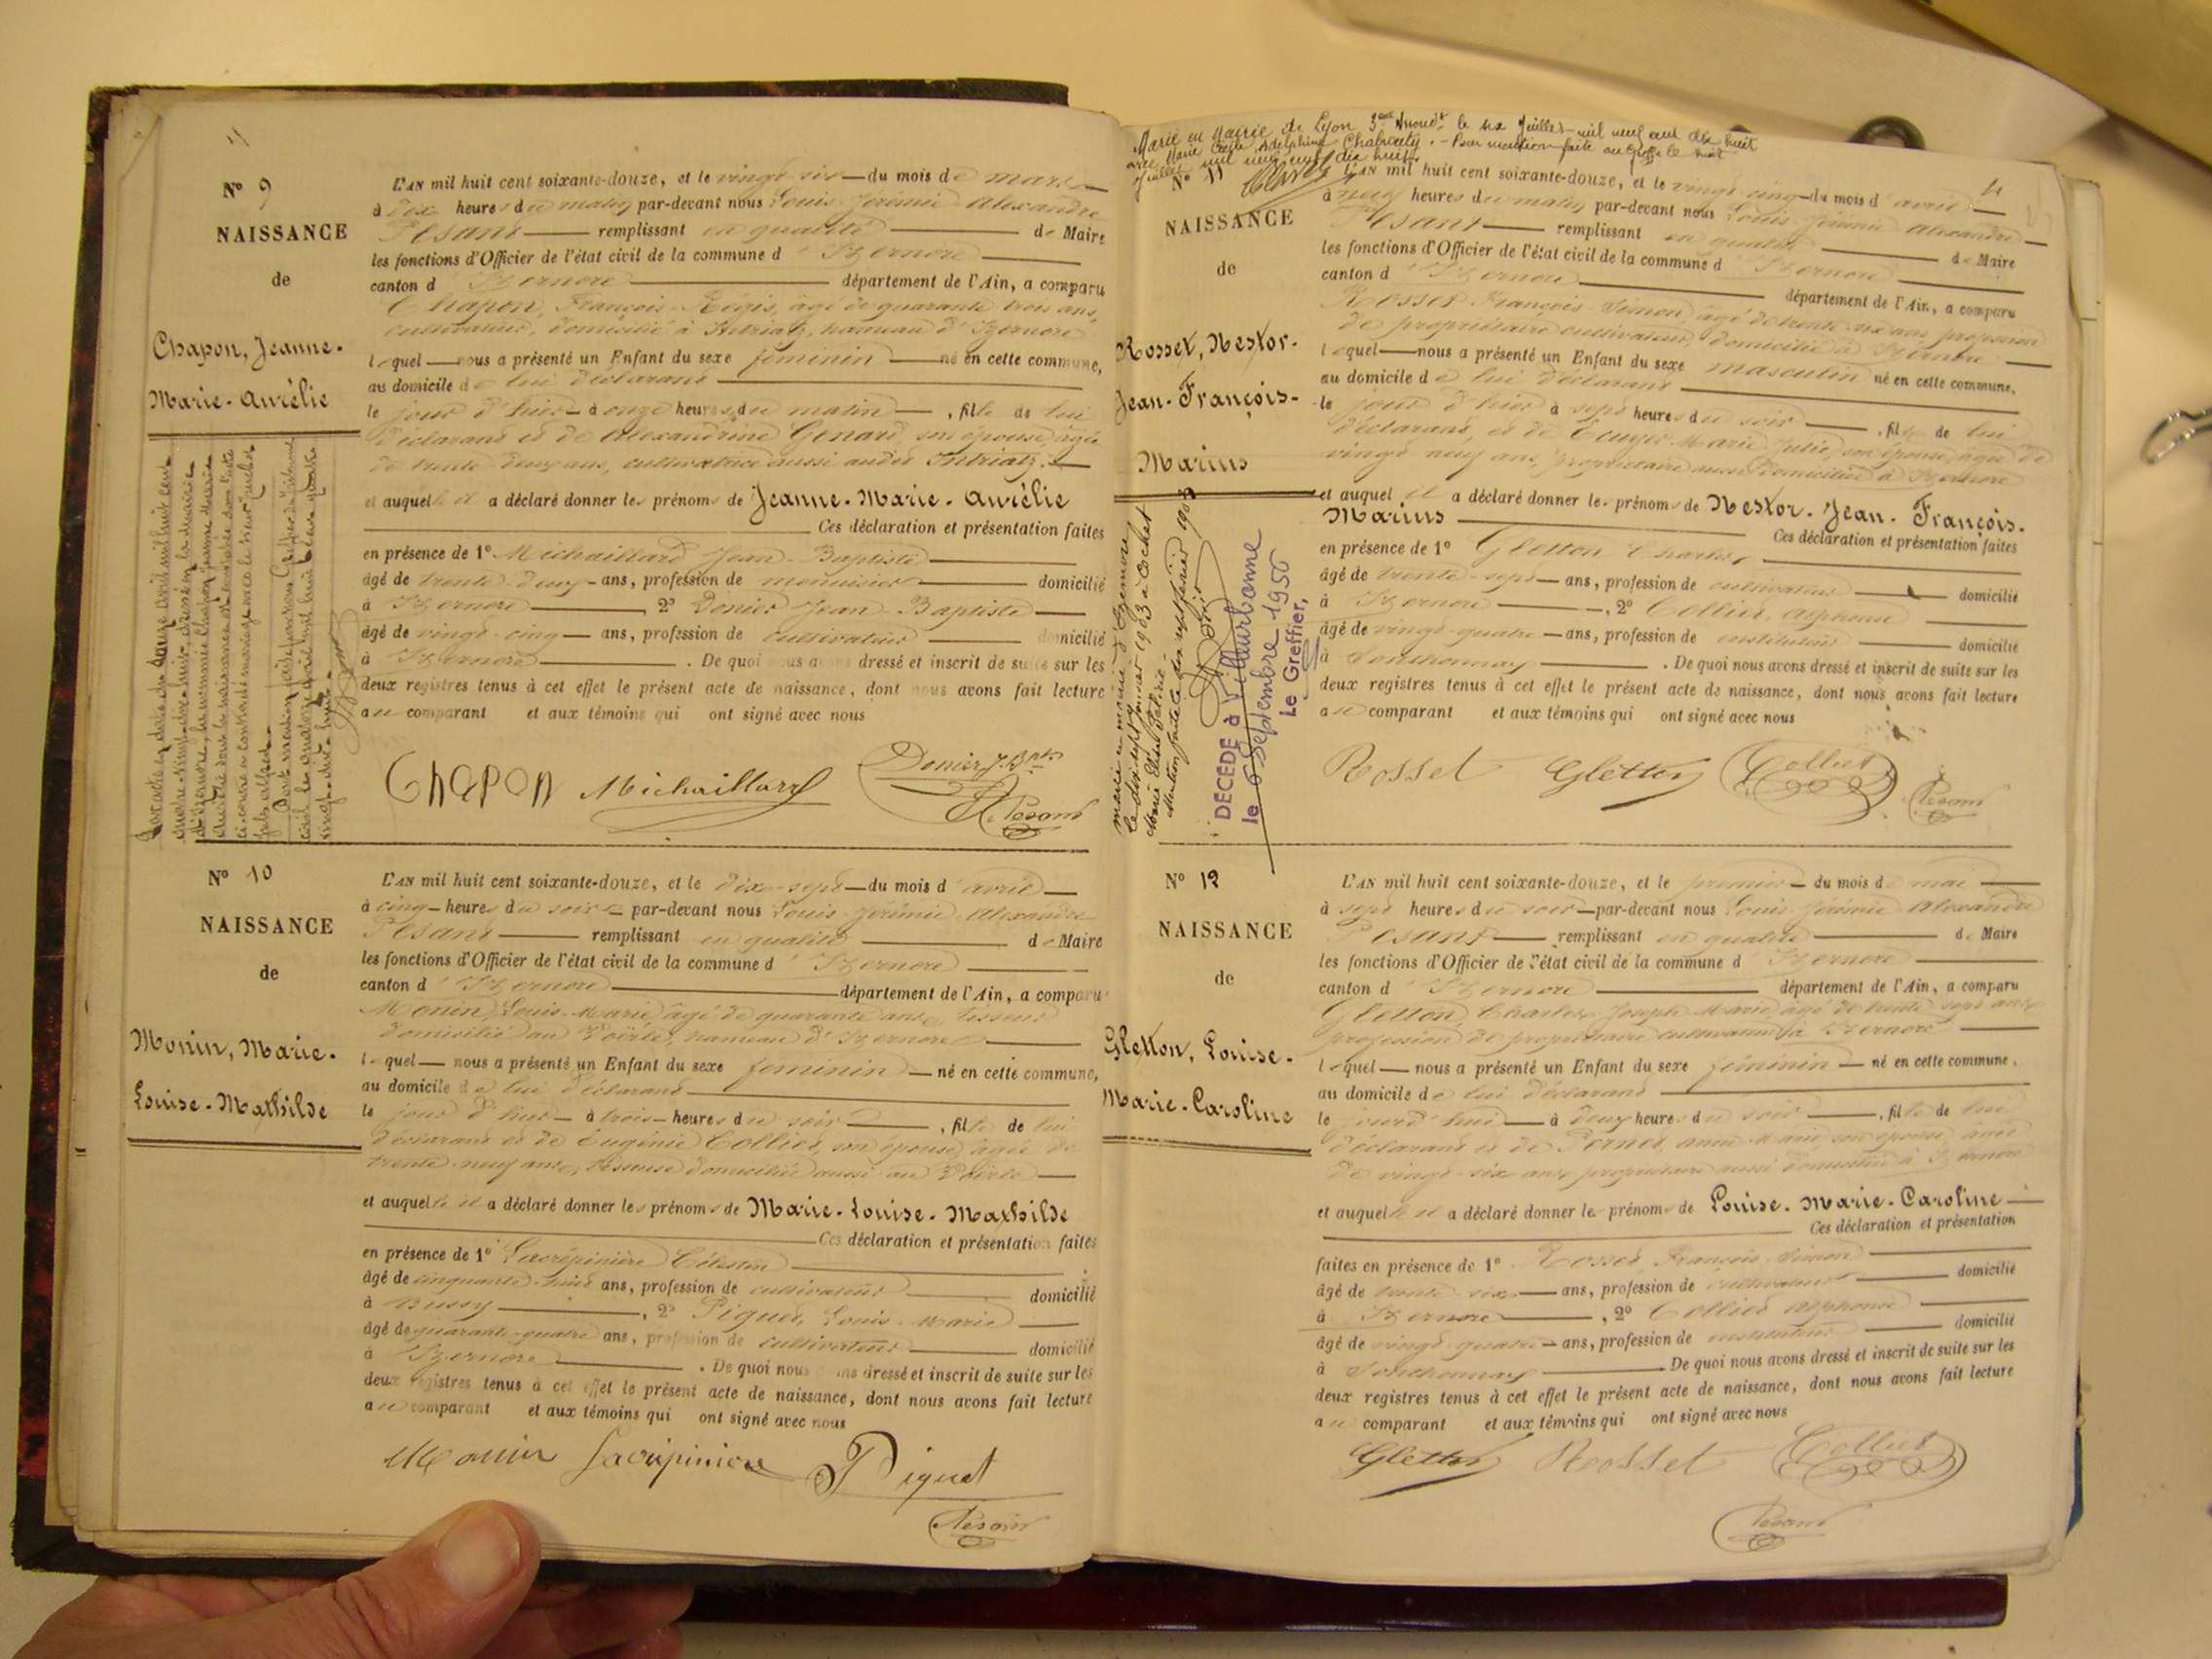 Nº 9
NAISSANCE
de
Chapon, Jeanne-
Marie-Aurélie
L'AN mil huit cent soixante-douze, et le vingt six — du mois de mars —
à dix heures du matin par-devant nous Louis Jérémie Alexandre
Pesant — remplissant en qualité — de Maire
les fonctions d'Officier de l'état civil de la commune d'Izernore —
canton d'Izernore — département de l'Ain, a comparu
Chapon, François-Régis, âgé de quarante trois ans,
cultivateur, domicilié à Intriatz, hameau d'Izernore
lequel — nous a présenté un Enfant du sexe féminin — né en cette commune,
au domicile de lui déclarant —
le jour d'hier — à onze heures du matin —, fille de lui
déclarant et de Alexandrine Genard, son épouse, âgée
de trente deux ans, cultivatrice aussi au dit Intriatz. —
et auquel le il a déclaré donner les prénoms de Jeanne-Marie-Aurélie
— Ces déclaration et présentation faites
en présence de 1º Michaillard Jean-Baptiste —
âgé de trente-deux — ans, profession de menuisier — domicilié
à Izernore —, 2º Denier Jean-Baptiste —
âgé de vingt-cinq — ans, profession de cultivateur — domicilié
à Izernore —. De quoi nous avons dressé et inscrit de suite sur les
deux registres tenus à cet effet le présent acte de naissance, dont nous avons fait lecture
au comparant et aux témoins qui ont signé avec nous
Chapon Michaillard Denier J. Bte
Pesant
Nº 10
NAISSANCE
de
Monin, Marie-
Louise-Mathilde
L'AN mil huit cent soixante-douze, et le dix-sept — du mois d'avril —
à cinq — heures du soir — par-devant nous Louis Jérémie Alexandre
Pesant — remplissant en qualité — de Maire
les fonctions d'Officier de l'état civil de la commune d'Izernore —
canton d'Izernore — département de l'Ain, a comparu
Monin, Louis-Marie, âgé de quarante ans, tisseur
domicilié au Voërle, hameau d'Izernore —
lequel — nous a présenté un Enfant du sexe féminin — né en cette commune,
au domicile de lui déclarant —
le jour d'hier — à trois — heures du soir —, fille de lui
déclarant et de Eugénie Collier, son épouse, âgée de
trente-neuf ans, tisseuse domiciliée aussi au Voërle —
et auquel le il a déclaré donner les prénoms de Marie-Louise-Mathilde
— Ces déclaration et présentation faites
en présence de 1º Lacrépinière Célestin —
âgé de cinquante-huit ans, profession de cultivateur — domicilié
à Bussy —, 2º Piquet, Louis-Marie —
âgé de quarante-quatre ans, profession de cultivateur — domicilié
à Izernore —. De quoi nous avons dressé et inscrit de suite sur les
deux registres tenus à cet effet le présent acte de naissance, dont nous avons fait lecture
au comparant et aux témoins qui ont signé avec nous
Monin Lacrépinière Piquet
Pesant
Marié en Mairie de Lyon 3eme Arrondt le six Juillet mil neuf cent dix huit
avec Marie Adelphine — Pour mention faite au Greffe le huit
Juillet mil neuf cent dix huit.
4
Nº 11
NAISSANCE
de
Rosset, Nestor-
Jean-François-
Marius
DÉCÉDÉ à Villeurbanne
le 6 Septembre 1956
Le Greffier,
L'AN mil huit cent soixante-douze, et le vingt cinq — du mois d'avril —
à neuf heures du matin par-devant nous Louis Jérémie Alexandre —
Pesant — remplissant en qualité — de Maire
les fonctions d'Officier de l'état civil de la commune d'Izernore —
canton d'Izernore — département de l'Ain, a comparu
Rosset François Simon âgé de trente-six ans profession
de propriétaire cultivateur, domicilié à Izernore —
lequel — nous a présenté un Enfant du sexe masculin né en cette commune,
au domicile de lui déclarant —
le jour d'hier à sept heures du soir —, fils de lui
déclarant, et de Marie Julie, son épouse, âgée de
vingt neuf ans, propriétaire aussi domiciliée à Izernore
et auquel il a déclaré donner les prénoms de Nestor-Jean-François-
Marius — Ces déclaration et présentation faites
en présence de 1º Gletton Charles, —
âgé de trente-sept — ans, profession de cultivateur — domicilié
à Izernore —, 2º Collier, Alphonse —
âgé de vingt-quatre — ans, profession de instituteur — domicilié
à Sonthonnax —. De quoi nous avons dressé et inscrit de suite sur les
deux registres tenus à cet effet le présent acte de naissance, dont nous avons fait lecture
au comparant et aux témoins qui ont signé avec nous
Rosset Gletton Collier
Pesant
Nº 12
NAISSANCE
de
Gletton, Louise-
Marie-Caroline
L'AN mil huit cent soixante-douze, et le premier — du mois de mai —
à sept heures du soir — par-devant nous Louis Jérémie Alexandre
Pesant — remplissant en qualité — de Maire
les fonctions d'Officier de l'état civil de la commune d'Izernore —
canton d'Izernore — département de l'Ain, a comparu
Gletton, Charles Joseph Marie, âgé de trente sept ans,
profession de propriétaire cultivateur à Izernore —
lequel — nous a présenté un Enfant du sexe féminin — né en cette commune,
au domicile de lui déclarant —
le jourd'hui — à deux heures du soir —, fille de lui
déclarant et de Pernet, Anne-Marie son épouse, âgée
de vingt-six ans propriétaire aussi domiciliée à Izernore
et auquel le il a déclaré donner les prénoms de Louise-Marie-Caroline —
— Ces déclaration et présentation
faites en présence de 1º Rosset, François-Simon —
âgé de trente-six — ans, profession de cultivateur — domicilié
à Izernore —, 2º Collier Alphonse —
âgé de vingt-quatre — ans, profession de instituteur — domicilié
à Sonthonnax — De quoi nous avons dressé et inscrit de suite sur les
deux registres tenus à cet effet le présent acte de naissance, dont nous avons fait lecture
au comparant et aux témoins qui ont signé avec nous
Gletton Rosset Collier
Pesant